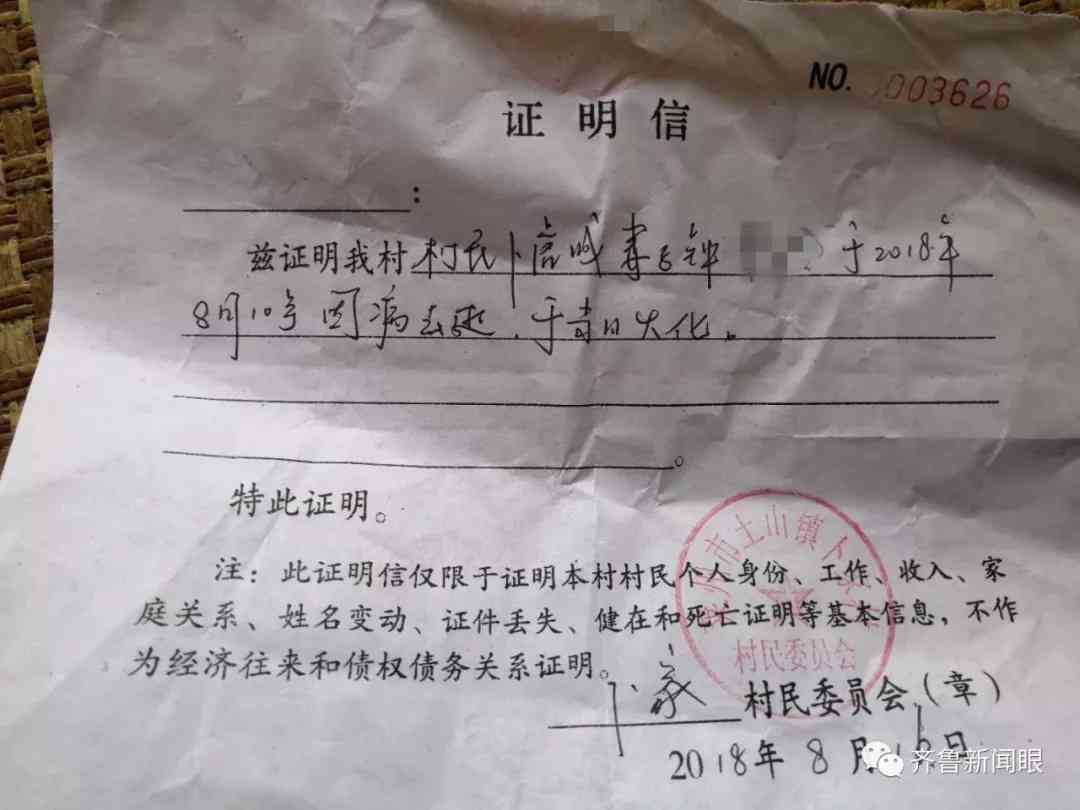 NO. 003626
证明信
：
兹证明我村村民卜 妻 于2018年
8月10号因病去逝，于当日火化。
特此证明。
注：此证明信仅限于证明本村村民个人身份、工作、收入、家
庭关系、姓名变动、证件丢失、健在和死亡证明等基本信息，不作
为经济往来和债权债务关系证明。
州市土山镇卜
村民委员会
卜家 村民委员会（章）
2018年8月16日
齐鲁新闻眼